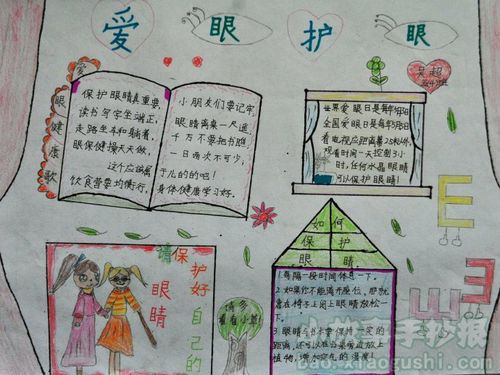 爱 眼 护 眼
吴超
爱眼健康歌
保护眼睛真重要,
读书写字坐端正,
走路坐车和躺着,
眼保健操天天做,
这个应该
饮食营养均衡行,
小朋友们要记牢,
眼睛离桌一尺遥
千万不要把书瞧
一日两次不可少,
子儿的的吧!
身体健康学习好。
世界爱眼日是每年
全国爱眼日是每年6月6日
看电视应距离屏
观看时间一天控制3小
时,任何水晶眼睛
可以保护眼睛!
请保护好自己的
眼睛
请多
看看小草
如何
保护
眼睛
1.每隔一段时间休息一下。
2.如果你不能离开座位,那就
靠在椅子上闭上眼睛放松一
下。
3.眼睛与书本要保持一定的
距离,还可以在
植物,增加空气的湿度!
E
E
E
手抄报
bao.xiaogushi.com